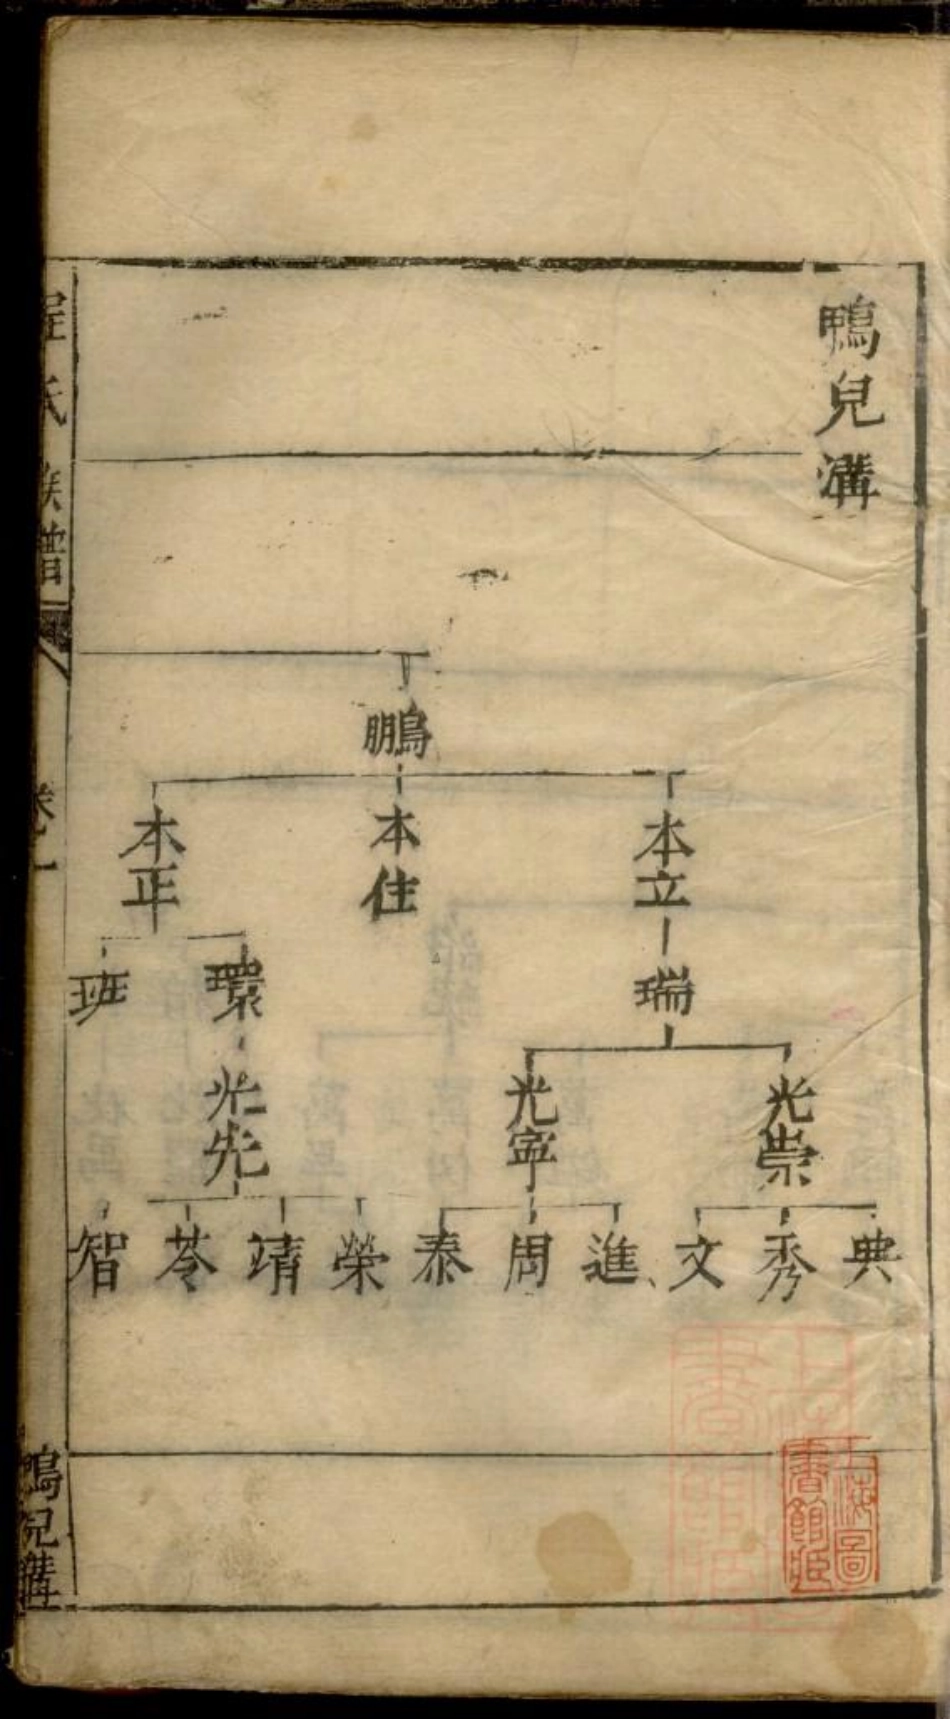 鴨兒溝
鵬
本立
本住
本正
瑞
環
班
光崇
光寧
光先
典
秀
文
進
周
泰
榮
靖
苓
智
程氏族譜
卷一
鴨兒溝
上海圖書館藏